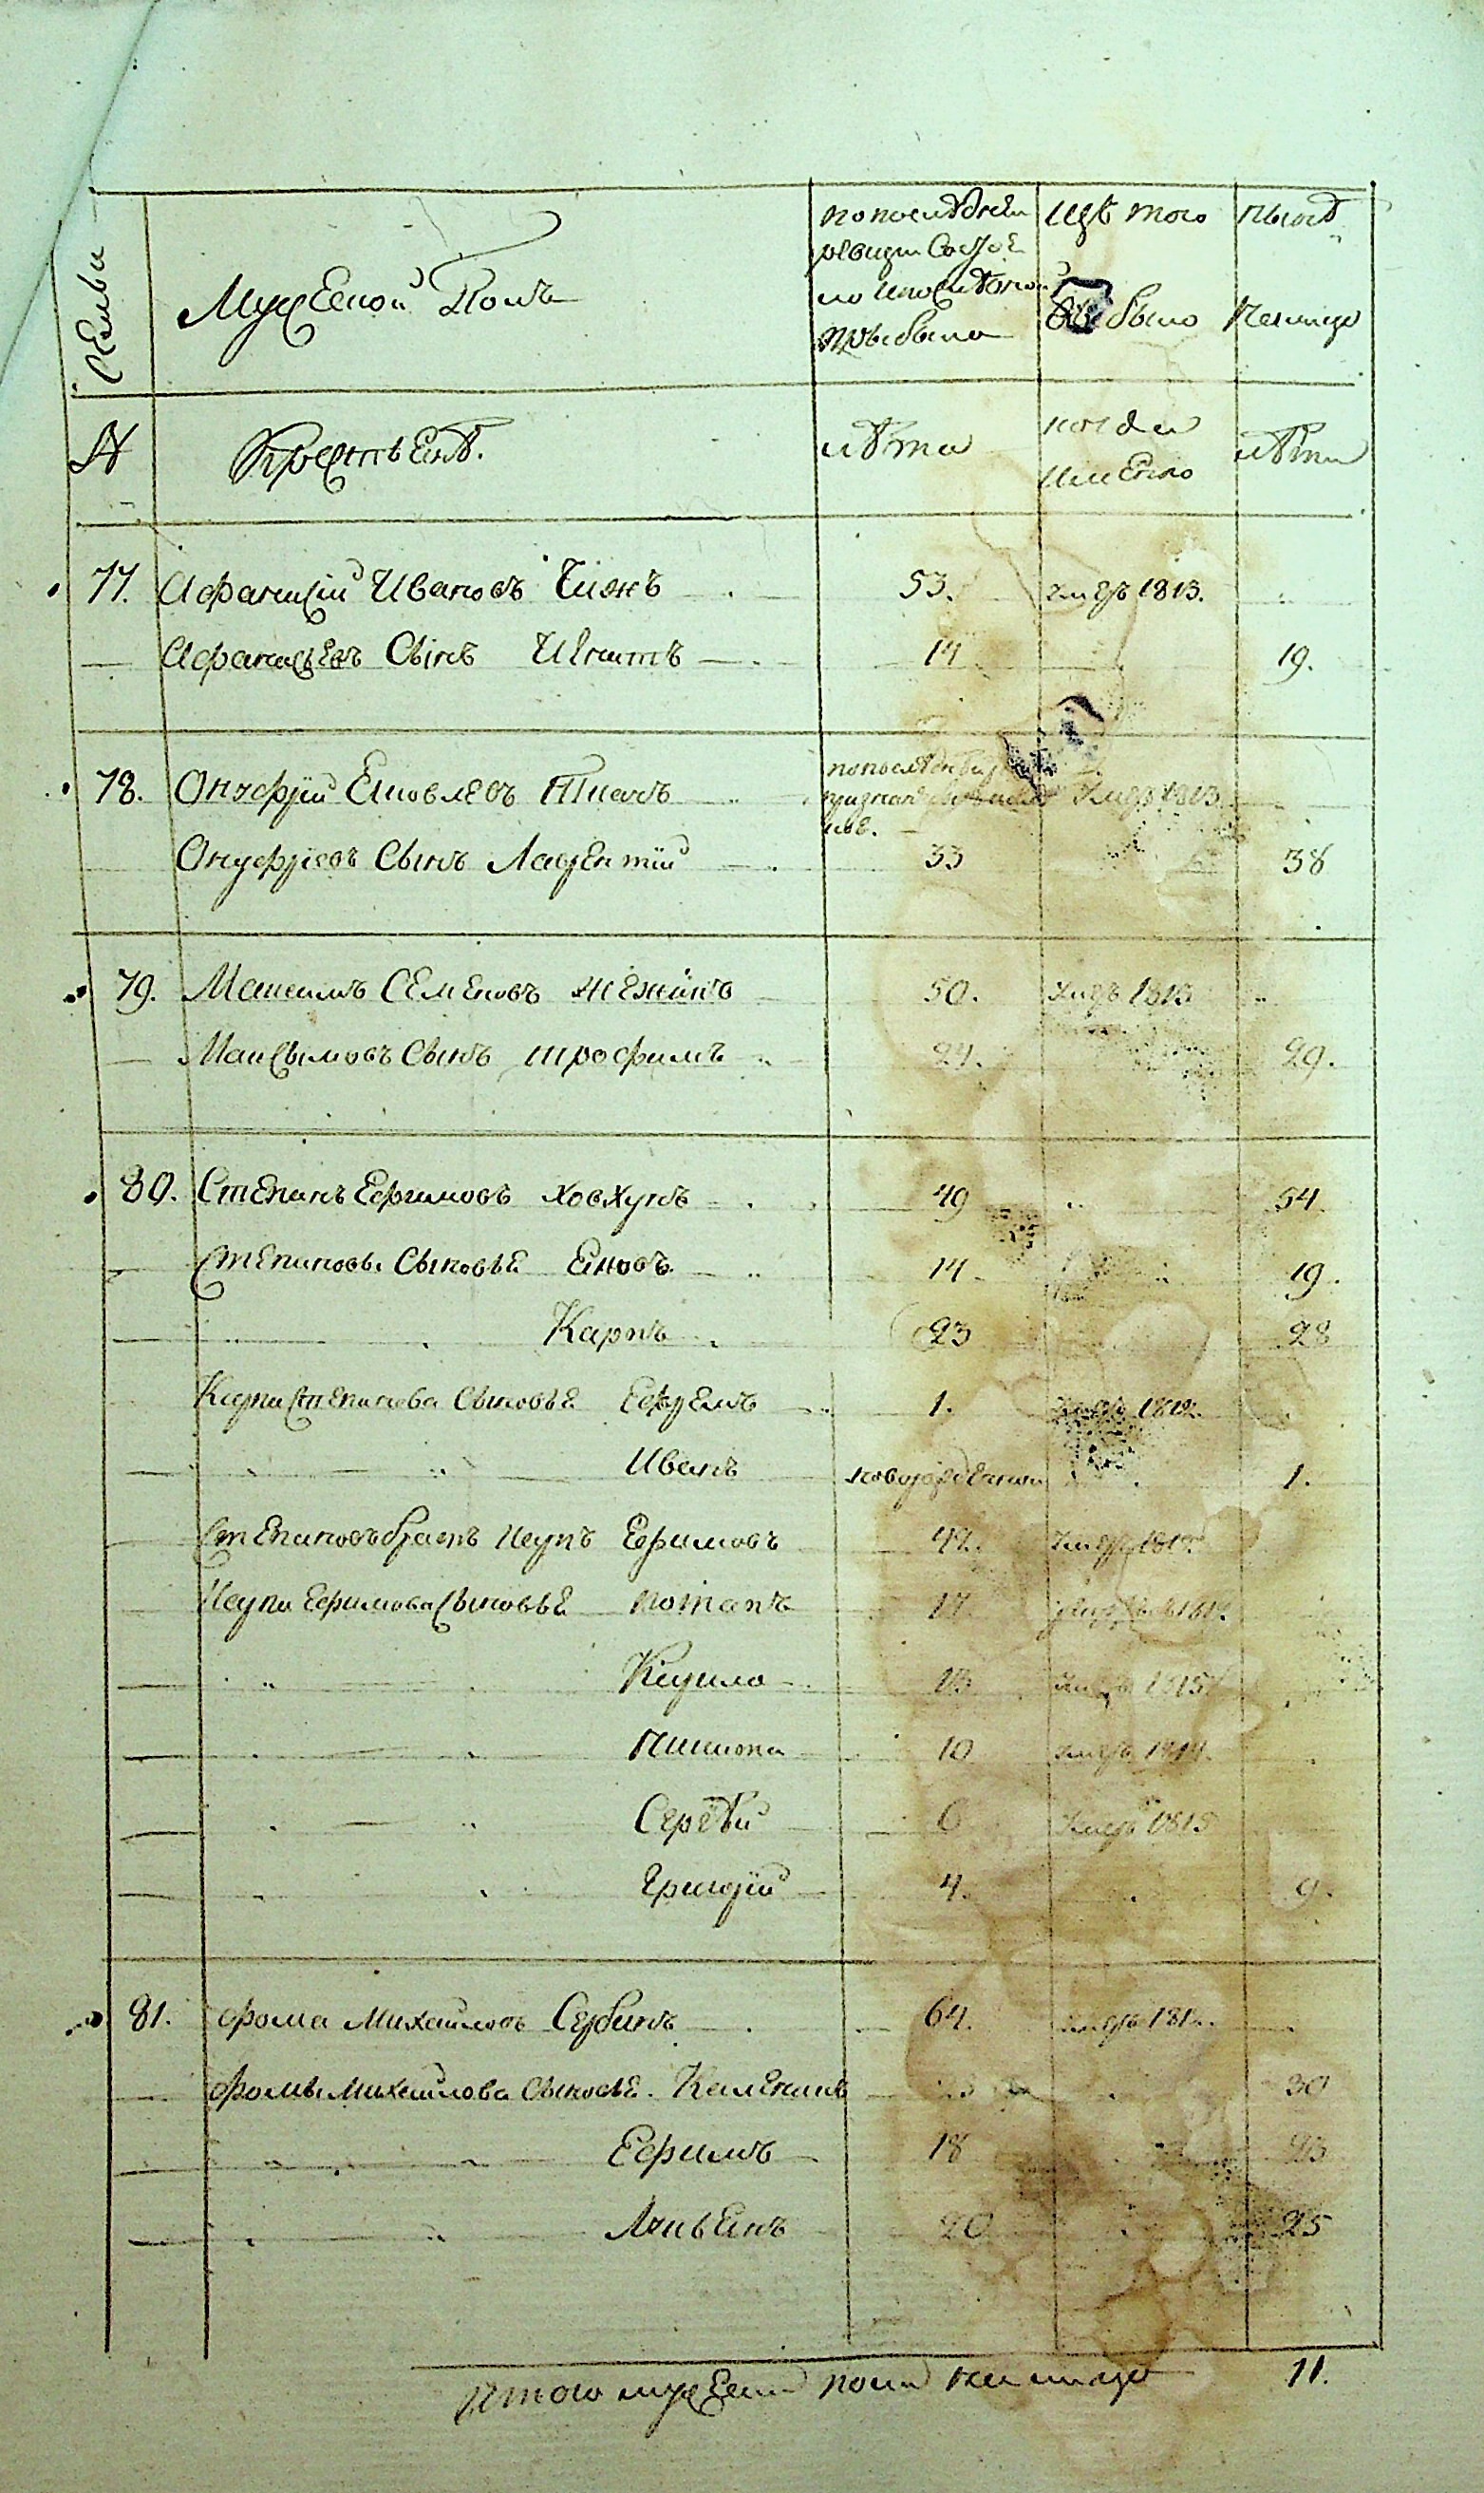 Семьи
Мужеской Полъ
по последней
ревизии состоя
ло и после оной
прибыло
Изъ того
выбыло
ныне
налицо
№
Крестьянѣ.
лѣта
когда
именно
лѣта
77. Афанасій Ивановъ Чижъ 53. умеръ 1813.
Афанасьевъ Сынъ Игнатъ 14 19.
78. Онуфрій Яковлевъ Ткачъ умеръ 1813
Онуфріевъ Сынъ Лаврентій 33 38
79. Максимъ Семеновъ 50. умеръ 1813
Максимовъ Сынъ трофимъ 24. 29.
80. Степанъ Ефимовъ Ховхунъ 49 54.
Степановы Сыновья Яковъ 14 19.
Карпъ 23 28
Карпа Степанова Сыновья Ефремъ 1. умеръ 1812.
Иванъ новорожденной 1.
Степановъ братъ Иеупъ Ефимовъ 42. умеръ
Иеупа Ефимова Сыновья потапъ 17
Кирило 13 умеръ 1815
Никита 10 умеръ 1814.
Сергѣй 6 умеръ 1815
Григорій 4. 9.
81. фома Михайловъ Сербинъ 64. умеръ
фомы Михайлова Сыновья. Каленикъ 30
Ефимъ 18 23
Лукьянъ 20 25
Итого мужеска пола на лицо 11.